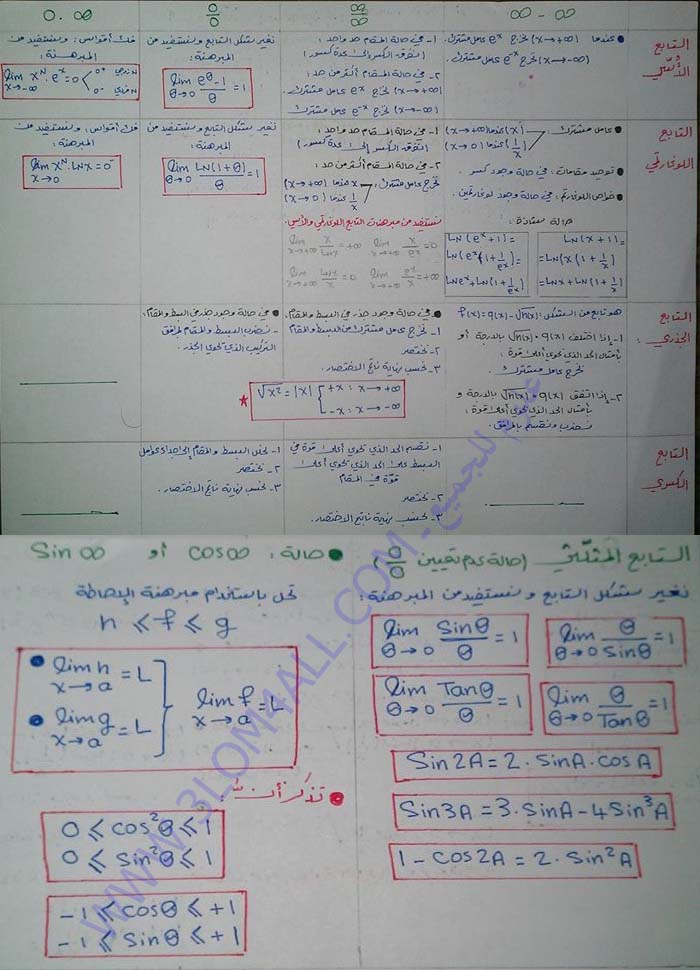 ∞ - ∞
∞/∞
0/0
0 . ∞
التابع الأُسّي
● عندما (x→+∞) نخرج eˣ عامل مشترك.
(x→-∞) نخرج e⁻ˣ عامل مشترك.
١- في حالة المقام حد واحد:
(نفرقه الكسر إلى عدة كسور)
٢- في حالة المقام أكثر من حد:
(x→+∞) نخرج eˣ عامل مشترك.
(x→-∞) نخرج e⁻ˣ عامل مشترك
نغير شكل التابع ونستفيد من
المبرهنة:
lim θ→0 (e^θ - 1)/θ = 1
فك أقواس: ونستفيد من
المبرهنة:
lim x→-∞ xᴺ.eˣ = 0 < 0⁺ N زوجي
0⁻ N فردي
التابع اللوغارتمي
● عامل مشترك: (x) عندما (x→+∞)
(1/x) عندما (x→0)
● توحيد مقامات: في حالة وجود كسور.
● خواص اللوغارتم: في حالة وجود لوغارتمين.
حالة معتادة:
LN(x+1)=
=LN(x(1+1/x))
=LNx+LN(1+1/x)
LN(eˣ+1)=
LN(eˣ(1+1/eˣ))=
LNeˣ+LN(1+1/eˣ)
١- في حالة المقام حد واحد:
(نفرقه الكسر إلى عدة كسور)
٢- في حالة المقام أكثر من حد:
نخرج عامل مشترك: x عندما (x→+∞)
1/x عندما (x→0)
نستفيد من مبرهنات التابع اللوغارتمي والأسي.
lim x→+∞ x/LNx = +∞
lim x→+∞ x/eˣ = 0
lim x→+∞ LNx/x = 0
lim x→+∞ eˣ/x = +∞
نغير شكل التابع ونستفيد من
المبرهنة:
lim θ→0 LN(1+θ)/θ = 1
فك أقواس: ونستفيد من
المبرهنة:
lim x→0 xᴺ.LNx = 0⁻
التابع الجذري:
هو تابع من الشكل: f(x)=g(x)-√h(x)
١- إذا اختلف g(x) و √h(x) بالدرجة أو
بأمثال الحد الذي يحوي أعلى قوة:
نخرج عامل مشترك.
٢- إذا اتفق g(x) و √h(x) بالدرجة و
بأمثال الحد الذي يحوي أعلى قوة:
نضرب ونقسم بالمرافق.
● في حالة وجود جذر في البسط والمقام:
١- نخرج عامل مشترك من البسط والمقام
٢- نختصر
٣- نحسب نهاية ناتج الاختصار.
* √x² = |x| { +x : x→+∞
-x : x→-∞
● في حالة وجود جذر في البسط والمقام:
- نضرب البسط والمقام بمرافق
التركيب الذي يحوي الجذر.
التابع الكسري
١- نقسم الحد الذي يحوي أعلى قوة في
البسط على الحد الذي يحوي أعلى
قوة في المقام
٢- نختصر
٣- نحسب نهاية ناتج الاختصار.
١- نحلل البسط والمقام إلى جداء عوامل
٢- نختصر
٣- نحسب نهاية ناتج الاختصار.
التابع المثلثي (حالة عدم تعيين 0/0)
نغير شكل التابع ونستفيد من المبرهنة:
lim θ→0 Sinθ/θ = 1
lim θ→0 θ/Sinθ = 1
lim θ→0 Tanθ/θ = 1
lim θ→0 θ/Tanθ = 1
Sin2A = 2.SinA.cosA
Sin3A = 3.SinA-4Sin³A
1-cos2A = 2.Sin²A
● حالة: cos∞ أو Sin∞
تحل باستخدام مبرهنة الإحاطة
h ≤ f ≤ g
● lim x→a h = L
● lim x→a g = L
lim x→a f = L
● تذكر أن:
0 ≤ cos²θ ≤ 1
0 ≤ Sin²θ ≤ 1
-1 ≤ cosθ ≤ +1
-1 ≤ Sinθ ≤ +1
WWW.3LOM4ALL.COM - علوم للجميع